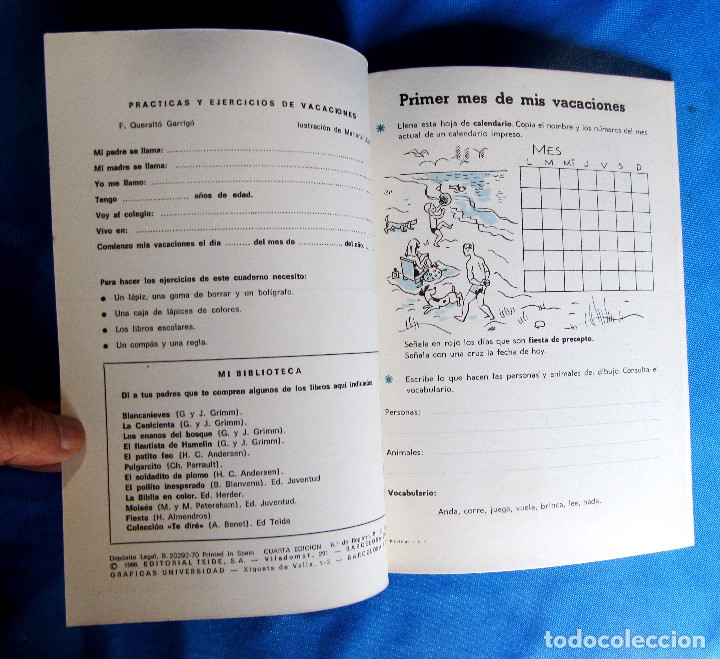 PRACTICAS Y EJERCICIOS DE VACACIONES
F. Queraltó Garrigó
Iustración de
Mi padre se llama:
Mi madre se llama:
Yo me llamo:
Tengo años de edad.
Voy al colegio:
Vivo en:
Comienzo mis vacaciones el día del mes de del año
Para hacer los ejercicios de este cuaderno necesito:
Un lápiz, una goma de borrar y un bolígrafo.
Una caja de lápices de colores.
Los libros escolares.
Un compás y una regla.
MI BIBLIOTECA
Di a tus padres que te compren algunos de los libros aquí indicados.
Blancanieves (G y J. Grimm).
La Cenicienta (G. y J. Grimm).
Los enanos del bosque (G. y J. Grimm).
El flautista de Hamelin (G. y J. Grimm).
El patito feo (H. C. Andersen).
Pulgarcito (Ch. Perrault).
El soldadito de plomo (H. C. Andersen).
El pollito inesperado (B. Bienvenu). Ed. Juventud
La Biblia en color. Ed. Herder.
Moisés (M. y M. Petersham). Ed. Juventud.
Fiesta (H. Almendros)
Colección «Te diré» (A. Benet). Ed Teide
Depósito Legal, B. 20292-70 Printed in Spain CUARTA EDICION N.º de Registro,
© 1966 EDITORIAL TEIDE, S.A. — Viladomat, 291 — BARCELONA
GRAFICAS UNIVERSIDAD — Xiquets de Valls, 1-3 — BARCELONA
Primer mes de mis vacaciones
Llena esta hoja de calendario. Copia el nombre y los números del mes
actual de un calendario impreso.
MES
L M Mi J V S D
Señala en rojo los días que son fiesta de precepto.
Señala con una cruz la fecha de hoy.
Escribe lo que hacen las personas y animales del dibujo. Consulta el
vocabulario.
Personas:
Animales:
Vocabulario:
Anda, corre, juega, vuela, brinca, lee, nada.
todocoleccion.net